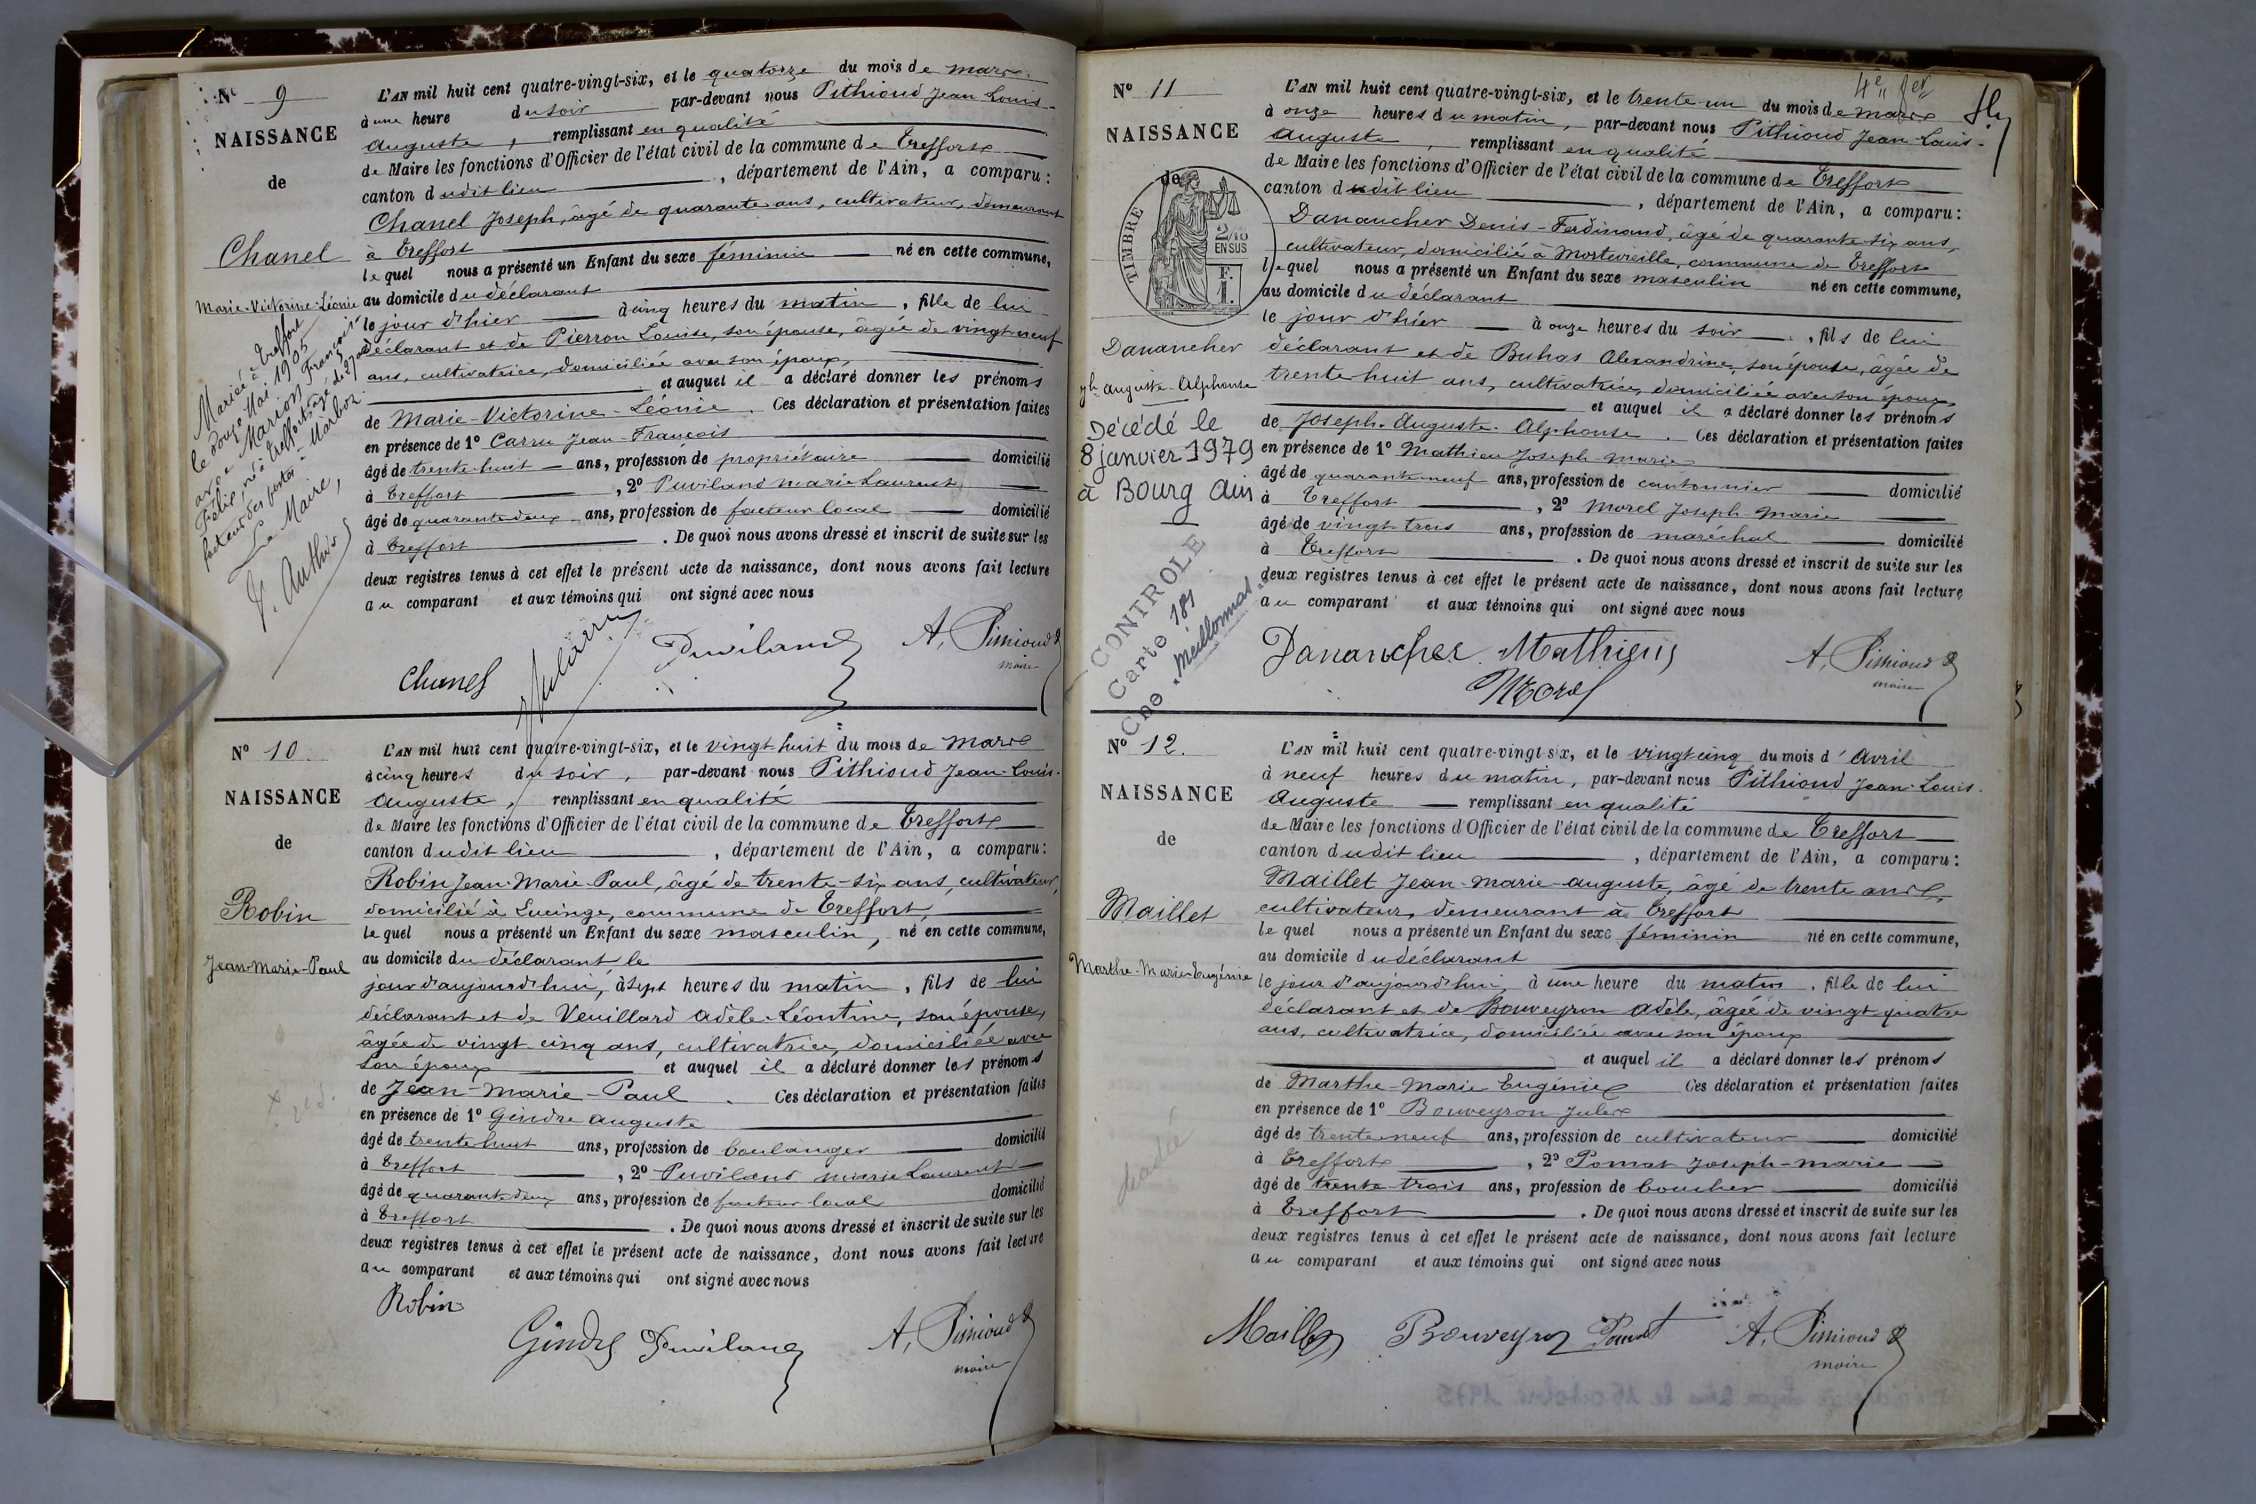 Nº 9
NAISSANCE
de
Chanel
Marie-Victorine-Léonie
Mariée à Treffort
le douze Mai 1905
avec Marion François
Félix, né à Treffort, âgé de 27 ans
facteur des postes à Marboz.
Le Maire,
L'AN mil huit cent quatre-vingt-six, et le quatorze du mois de mars
à une heure du soir par-devant nous Pithioud Jean Louis-
Auguste, remplissant en qualité
de Maire les fonctions d'Officier de l'état civil de la commune de Treffort
canton dudit lieu, département de l'Ain, a comparu :
Chanel Joseph, âgé de quarante ans, cultivateur, demeurant
à Treffort
lequel nous a présenté un Enfant du sexe féminin né en cette commune,
au domicile du déclarant
le jour d'hier à cinq heures du matin, fille de lui
déclarant et de Pierron Louise, son épouse, âgée de vingt-neuf
ans, cultivatrice, domiciliée avec son époux,
et auquel il a déclaré donner les prénoms
de Marie-Victorine-Léonie. Ces déclaration et présentation faites
en présence de 1º Carru Jean-François
âgé de trente-huit ans, profession de propriétaire domicilié
à Treffort, 2º Puviland Marie Laurent
âgé de quarante deux ans, profession de facteur local domicilié
à Treffort. De quoi nous avons dressé et inscrit de suite sur les
deux registres tenus à cet effet le présent acte de naissance, dont nous avons fait lecture
au comparant et aux témoins qui ont signé avec nous
Chanel Puviland A. Pithioud
maire
Nº 10.
NAISSANCE
de
Robin
Jean-Marie-Paul
L'AN mil huit cent quatre-vingt-six, et le vingt huit du mois de mars
à cinq heures du soir, par-devant nous Pithioud Jean-Louis-
Auguste, remplissant en qualité
de Maire les fonctions d'Officier de l'état civil de la commune de Treffort
canton dudit lieu, département de l'Ain, a comparu :
Robin Jean-Marie-Paul, âgé de trente-six ans, cultivateur,
domicilié à Lucinge, commune de Treffort,
lequel nous a présenté un Enfant du sexe masculin, né en cette commune,
au domicile du déclarant le
jour d'aujourd'hui, à sept heures du matin, fils de lui
déclarant et de Veuillard Adèle-Léontine, son épouse,
âgée de vingt cinq ans, cultivatrice, domiciliée avec
son époux et auquel il a déclaré donner les prénoms
de Jean-Marie-Paul. Ces déclaration et présentation faites
en présence de 1º Gindre Auguste
âgé de trente huit ans, profession de boulanger domicilié
à Treffort, 2º Puviland Marie Laurent
âgé de quarante deux ans, profession de facteur local domicilié
à Treffort. De quoi nous avons dressé et inscrit de suite sur les
deux registres tenus à cet effet le présent acte de naissance, dont nous avons fait lecture
au comparant et aux témoins qui ont signé avec nous
Robin
Gindre Puviland A. Pithioud
maire
Nº 11
NAISSANCE
de
TIMBRE
2/10
EN SUS
Danancher
ph Auguste-Alphonse
Décédé le
8 janvier 1979
à Bourg Ain
CONTROLE
Carte 181
Cne Meillonnas
L'AN mil huit cent quatre-vingt-six, et le trente-un du mois de mars
à onze heures du matin, par-devant nous Pithioud Jean-Louis-
Auguste, remplissant en qualité
de Maire les fonctions d'Officier de l'état civil de la commune de Treffort
canton dudit lieu, département de l'Ain, a comparu :
Danancher Denis-Ferdinand, âgé de quarante-six ans,
cultivateur, domicilié à Montevieille, commune de Treffort
lequel nous a présenté un Enfant du sexe masculin né en cette commune,
au domicile du déclarant
le jour d'hier à onze heures du soir, fils de lui
déclarant et de Buhas Alexandrine, son épouse, âgée de
trente-huit ans, cultivatrice, domiciliée avec son époux
et auquel il a déclaré donner les prénoms
de Joseph-Auguste-Alphonse. Ces déclaration et présentation faites
en présence de 1º Mathieu Joseph-Marie
âgé de quarante neuf ans, profession de cantonnier domicilié
à Treffort, 2º Morel Joseph Marie
âgé de vingt trois ans, profession de maréchal domicilié
à Treffort. De quoi nous avons dressé et inscrit de suite sur les
deux registres tenus à cet effet le présent acte de naissance, dont nous avons fait lecture
au comparant et aux témoins qui ont signé avec nous
Danancher Mathieu A. Pithioud
Morel maire
Nº 12.
NAISSANCE
de
Maillet
Marthe-Marie-Eugénie
L'AN mil huit cent quatre-vingt-six, et le vingt cinq du mois d'Avril
à neuf heures du matin, par-devant nous Pithioud Jean-Louis-
Auguste remplissant en qualité
de Maire les fonctions d'Officier de l'état civil de la commune de Treffort
canton dudit lieu, département de l'Ain, a comparu :
Maillet Jean-Marie-Auguste, âgé de trente ans,
cultivateur, demeurant à Treffort
lequel nous a présenté un Enfant du sexe féminin né en cette commune,
au domicile du déclarant
le jour d'aujourd'hui, à une heure du matin, fille de lui
déclarant et de Bouveyron Adèle, âgée de vingt quatre
ans, cultivatrice, domiciliée avec son époux
et auquel il a déclaré donner les prénoms
de Marthe-Marie Eugénie Ces déclaration et présentation faites
en présence de 1º Bouveyron Jules
âgé de trente neuf ans, profession de cultivateur domicilié
à Treffort, 2º Pomat Joseph-Marie
âgé de trente trois ans, profession de boucher domicilié
à Treffort. De quoi nous avons dressé et inscrit de suite sur les
deux registres tenus à cet effet le présent acte de naissance, dont nous avons fait lecture
au comparant et aux témoins qui ont signé avec nous
Maillet Bouveyron Pomat A. Pithioud
maire